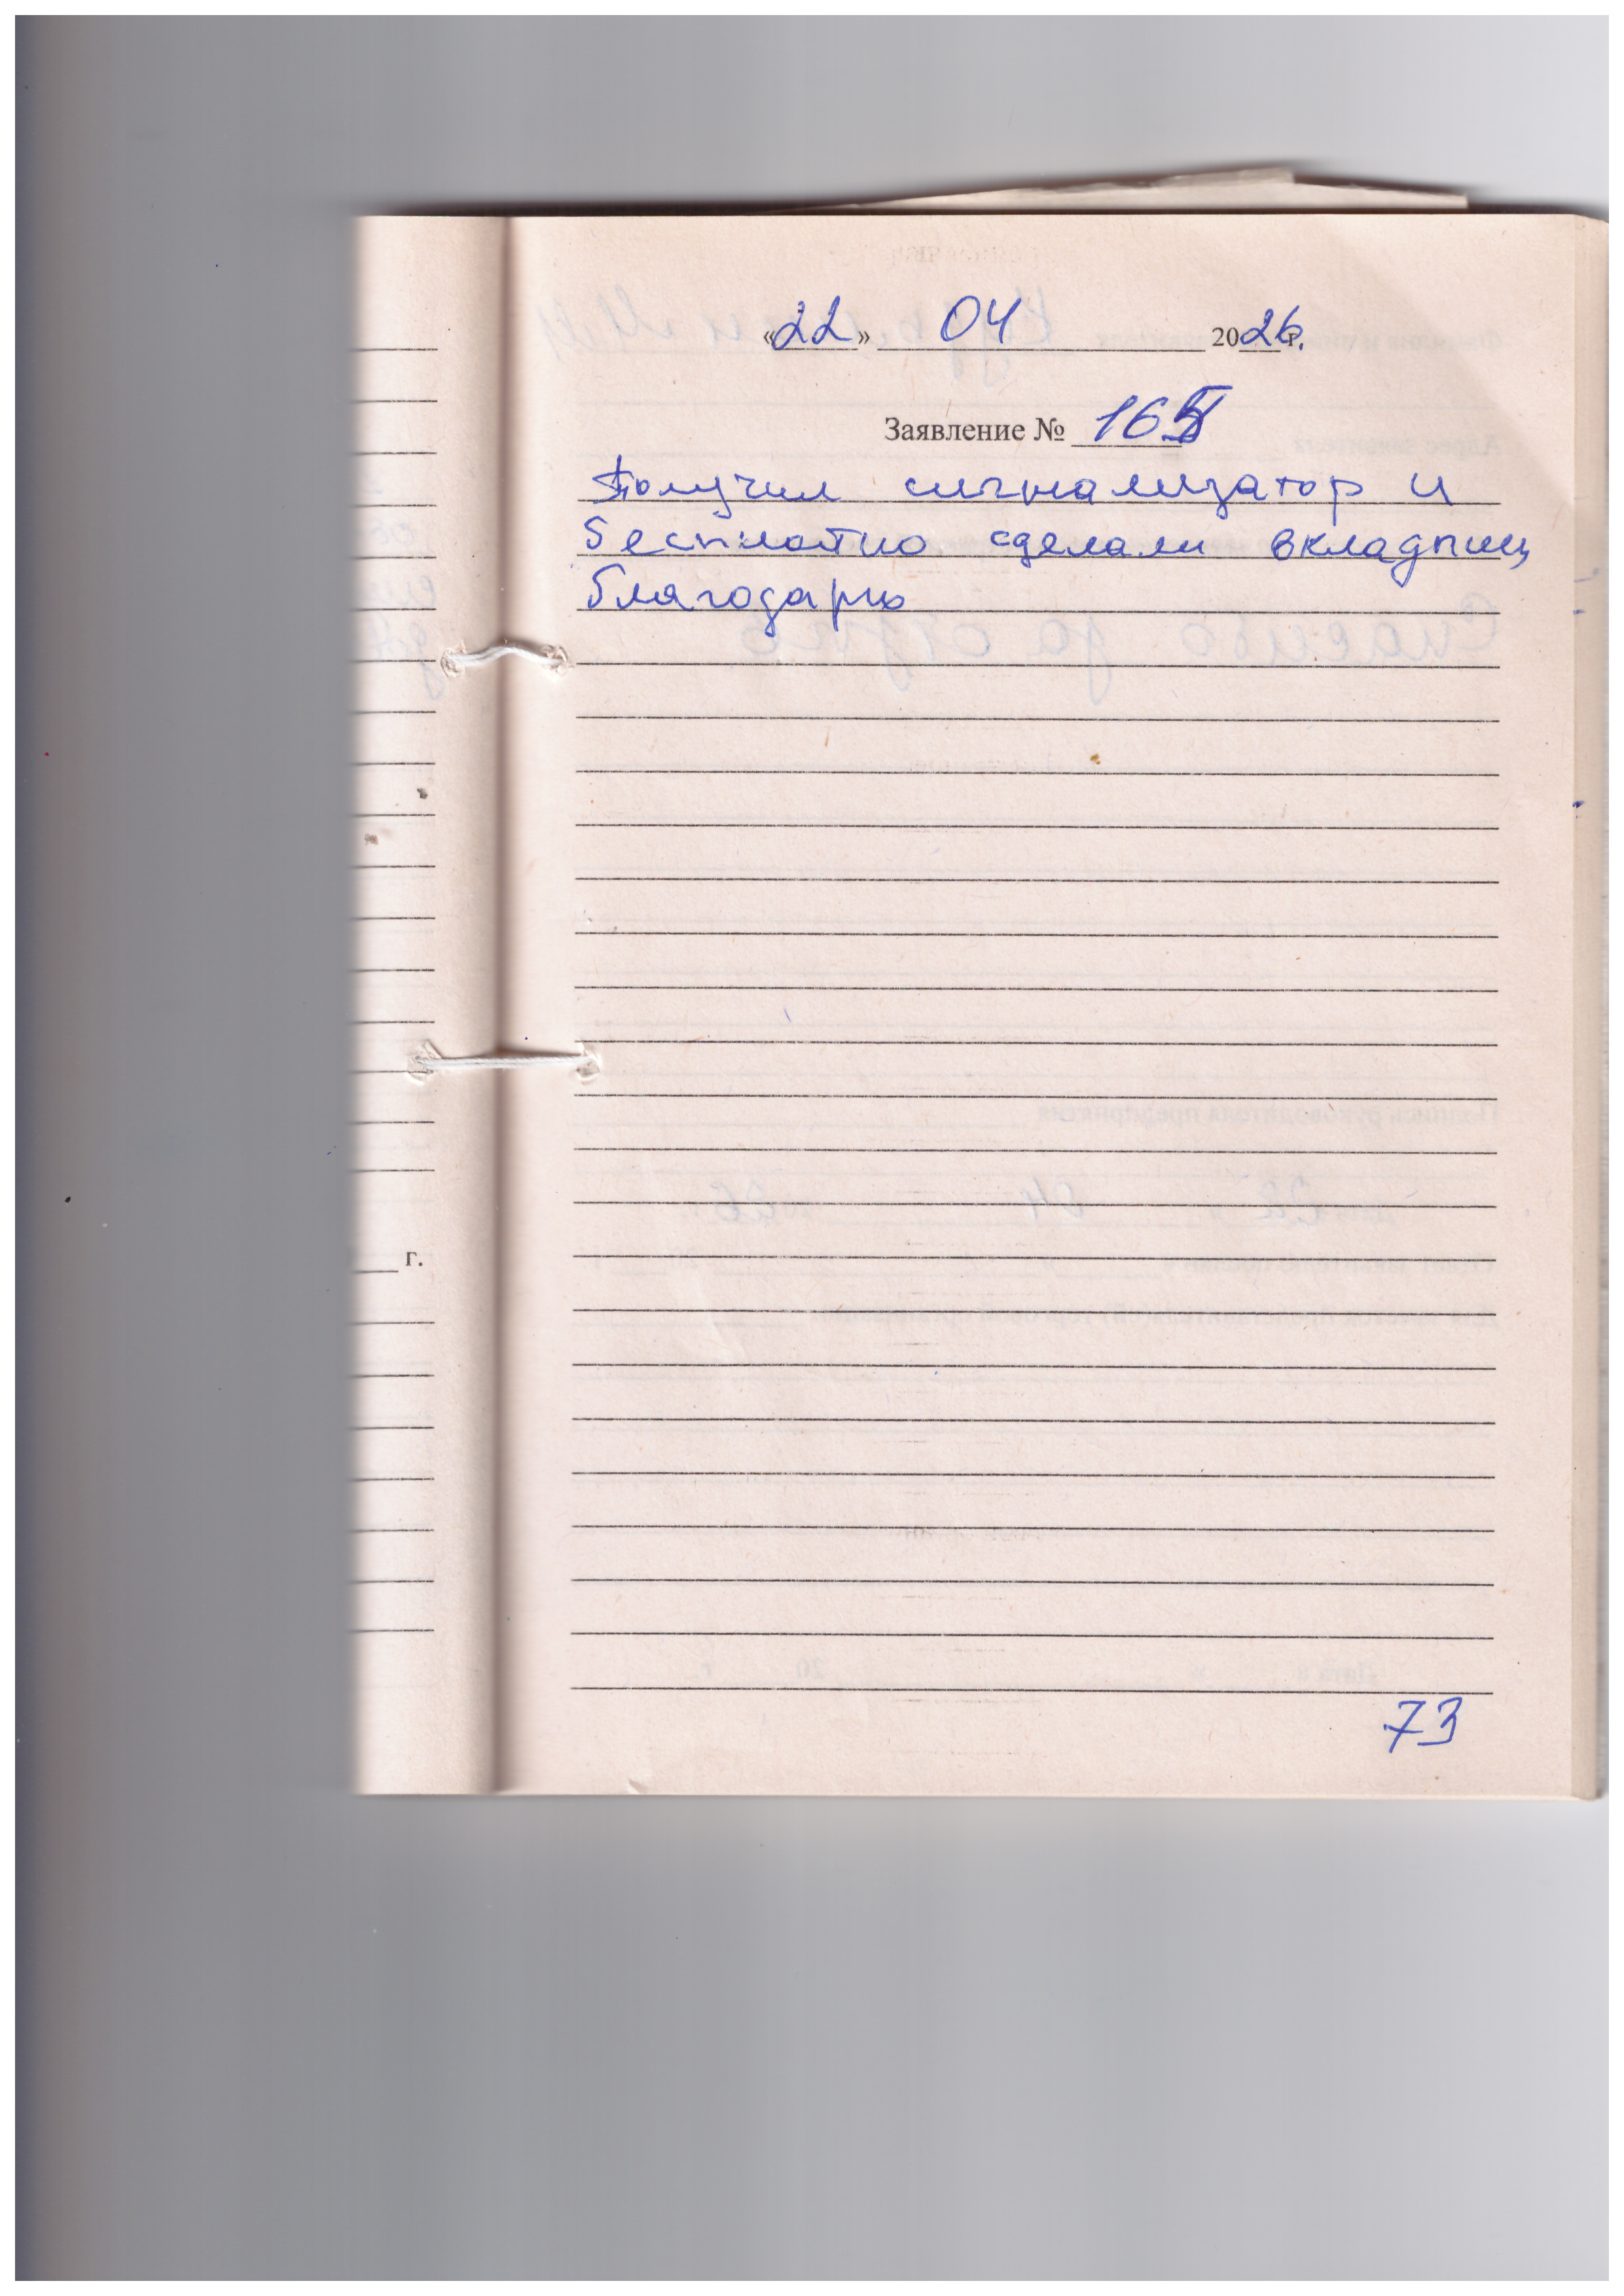 «22» 04 2026 г.
Заявление № 165
Получил сигнализатор и
бесплатно сделали вкладпиц
благодарю
г.
73